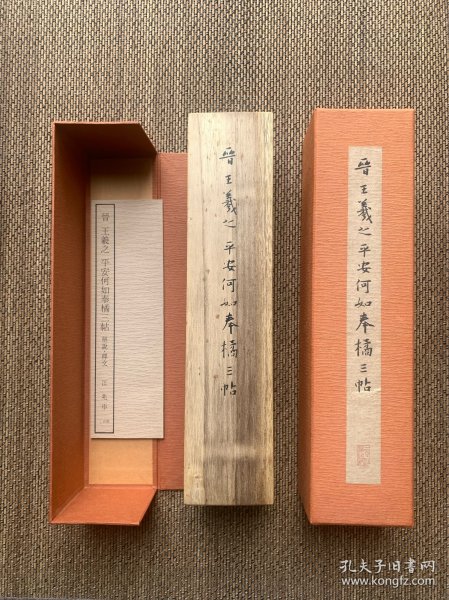 晉 王羲之 平安何如奉橘三帖
晉王羲之平安何如奉橘三帖
晉王羲之平安何如奉橘三帖
孔夫子旧书网
www.kongfz.com